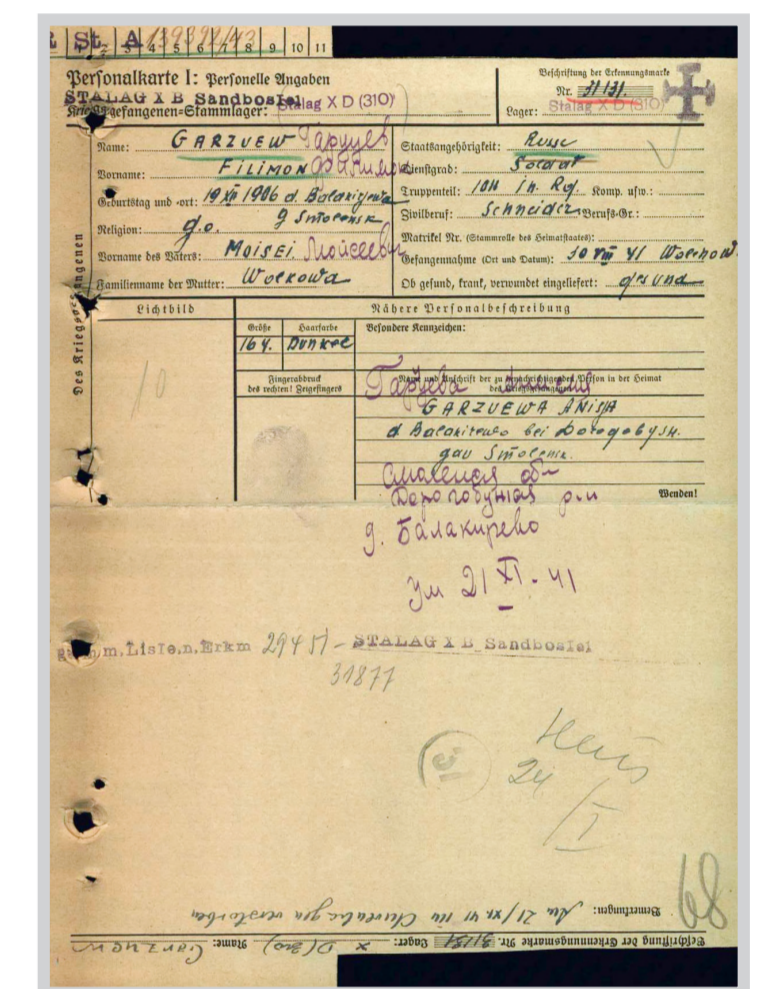 R St. A 139392/43
1 2 3 4 5 6 7 8 9 10 11
Personalkarte I: Personelle Angaben
STALAG X B Sandbostel
Kriegsgefangenen-Stammlager: Stalag X D (310)
Beschriftung der Erkennungsmarke
Nr. 31131.
Lager: Stalag X D (310)
Des Kriegsgefangenen
Name: GARZUEW Гарзуев
Vorname: FILIMON Филимон
Geburtstag und -ort: 19 XII 1906 d. Balakirewa
g Smolensk
Religion: g.o.
Vorname des Vaters: MOISEI Моисеевич
Familienname der Mutter: Wolkowa
Staatsangehörigkeit: Russe
Dienstgrad: Soldat
Truppenteil: In. Rg. Komp. usw.:
Zivilberuf: Schneider Berufs-Gr.:
Matrikel Nr. (Stammrolle des Heimatstaates):
Gefangennahme (Ort und Datum): 30 VIII 41 Wolchow
Ob gesund, krank, verwundet eingeliefert: gesund
Lichtbild
10
Nähere Personalbeschreibung
Größe
164.
Haarfarbe
Dunkel
Besondere Kennzeichen:
Fingerabdruck
des rechten! Zeigefingers
Name und Anschrift der zu benachrichtigenden Person in der Heimat
des Kriegsgefangenen
Гарзуева
GARZUEWA ANISJA
d Balakirewo bei Dorogobysh.
gau Smolensk.
Смоленская обл
Дорогобужский р-н
д. Балакирево
Wenden!
Ум 21 XI - 41
gem. m. Liste. n. Erkm 29451 - STALAG X B Sandbostel
31877
24
I
68
Bemerkungen: Am 21/XI. 41 im verstorben
Beschriftung der Erkennungsmarke Nr. 31131 Lager: X D (310) Name: GARZUEW